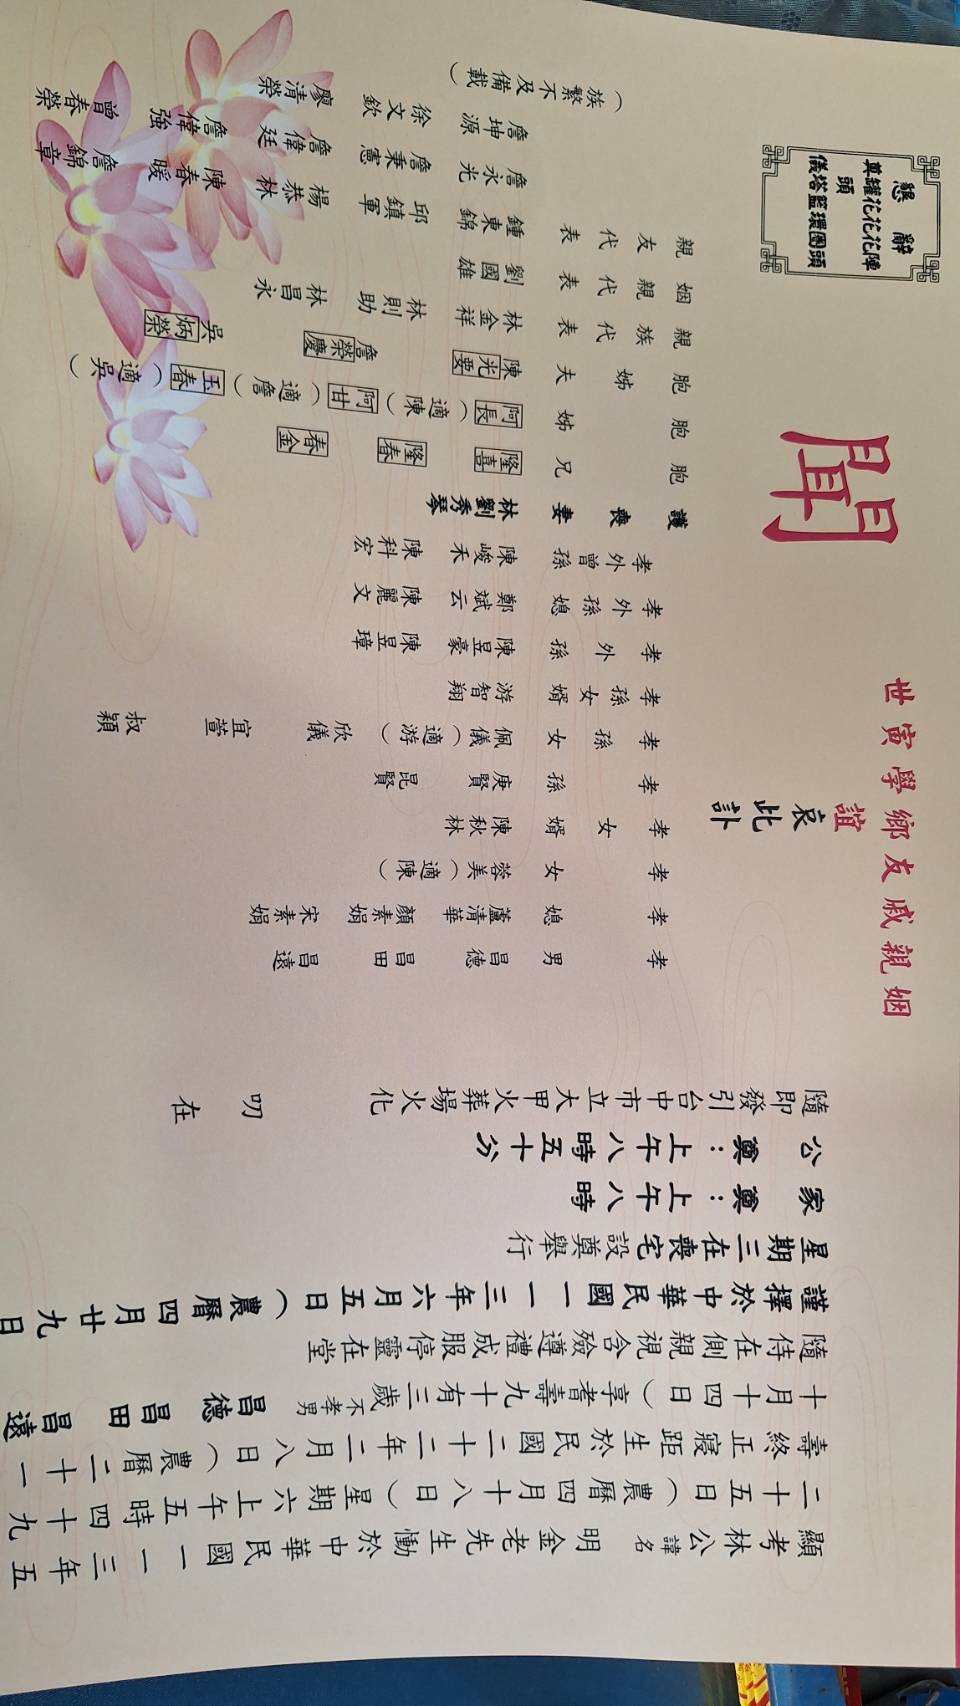 顯考林公諱名明金老先生慟於中華民國一一三年五
二十五日（農曆四月十八日）星期六上午五時四十九
壽終正寢距生於民國二十二年二月八日（農曆二十一
十月十四日）享耆壽九十有三歲不孝男 昌德 昌田 昌遠
隨侍在側親視含殮遵禮成服停靈在堂
謹擇於中華民國一一三年六月五日（農曆四月廿九日
星期三在喪宅設奠舉行
家奠：上午八時
公奠：上午八時五十分
隨即發引台中市立大甲火葬場火化 叨在
姻親戚友鄉學寅世
誼哀此訃
聞
孝男 昌德 昌田 昌遠
孝媳 蘆清華 顏素娟 宋素娟
孝女 蓉美（適陳）
孝女婿 陳秋林
孝孫 庚賢 昆賢
孝孫女 佩儀（適游） 欣儀 宜萱 叔穎
孝孫女婿 游智翔
孝外孫 陳昱豪 陳昱璋
孝外孫媳 鄭斌云 陳麗文
孝外曾孫 陳峻禾 陳科宏
護喪妻 林劉秀琴
胞兄 隆喜 隆春 春金
胞姊 阿長（適陳） 阿甘（適詹） 玉春（適吳）
胞姊夫 陳光要 詹榮慶 吳炳榮
親族代表 林金祥 林則助 林昌永
姻親代表 劉國雄
親友代表 鍾東錦 邱鎮軍 楊恭林 陳春暖 詹錦章
詹永光 詹秉憲 詹偉廷 詹偉強 曾春榮
詹坤源 徐文欽 廖清榮
（族繁不及備載）
懇辭
頭陣
花團
花環
花籃
罐頭塔
奠儀